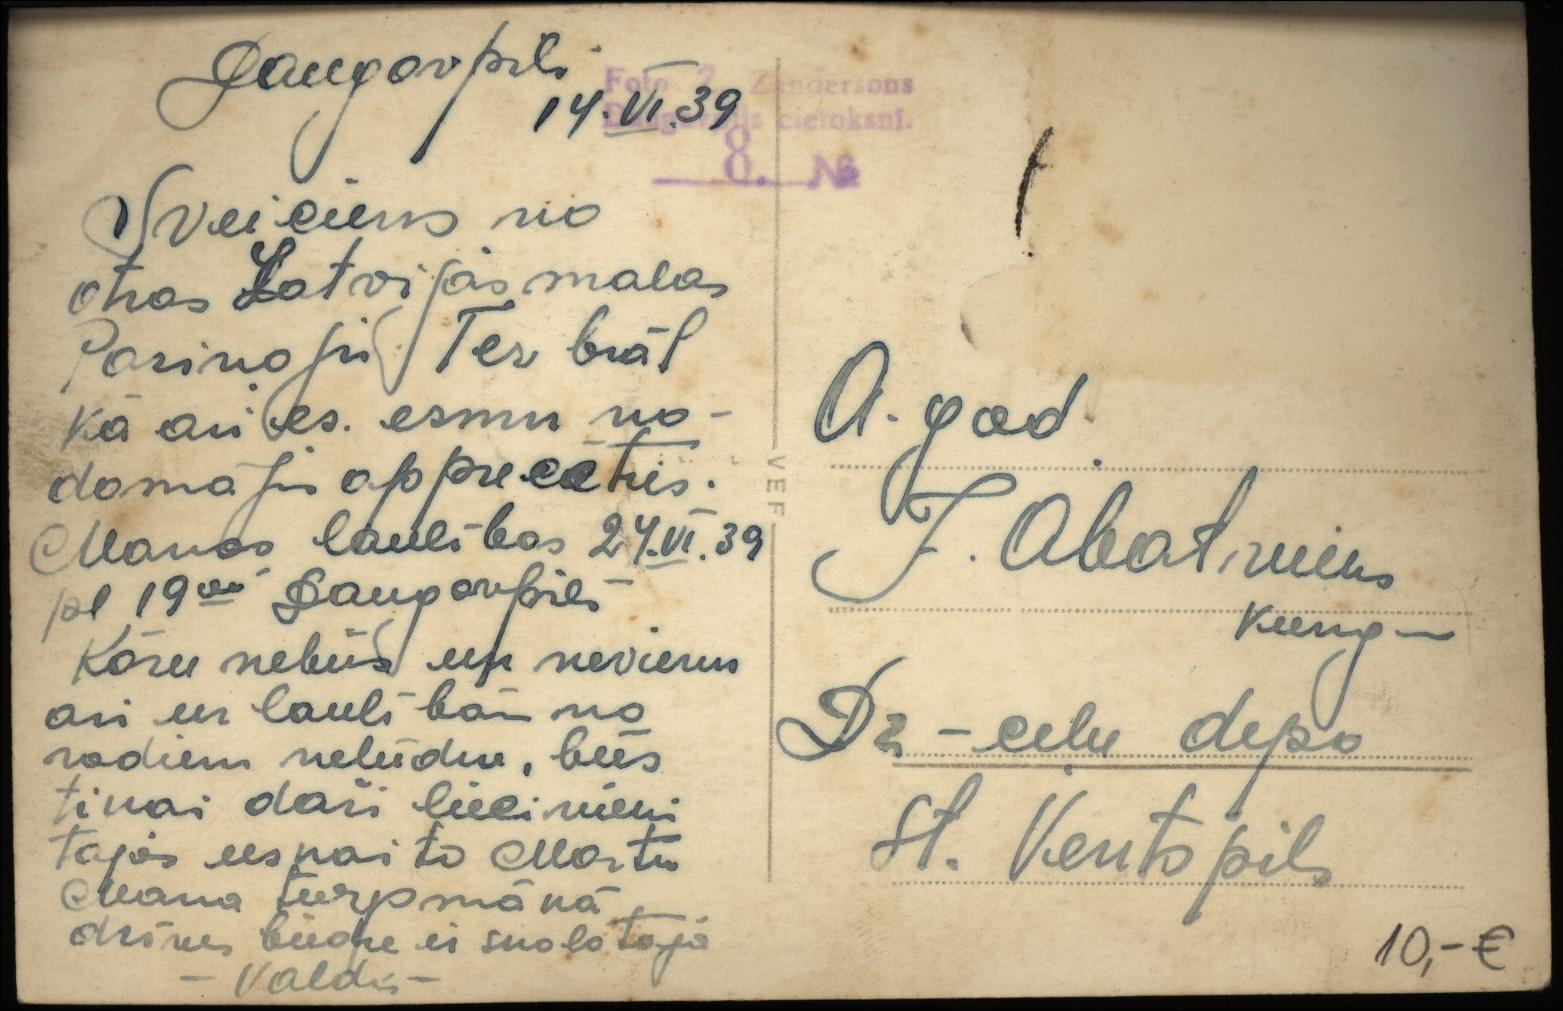 Daugavpilī
14.VI.39
Foto Ž. Zandersons
Daugavpils cietoksnī.
8. №
Sveiciens no
otras Latvijas malas
Paziņoju Tev brāl
kā arī es. esmu no-
domājis apprecēties.
Manas laulības 24.VI.39
pl 19⁰⁰ Daugavpilī
Kāzu nebūs un nevienu
arī uz laulībām no
radiem nelūdzu, būs
tikai daži liecinieki
tajās un
Mana turpmākā
dzīves
- Valdis -
VEF
A. god
J. Abatnieks
kung
Dz-ceļu depo
St. Ventspils
10,- €